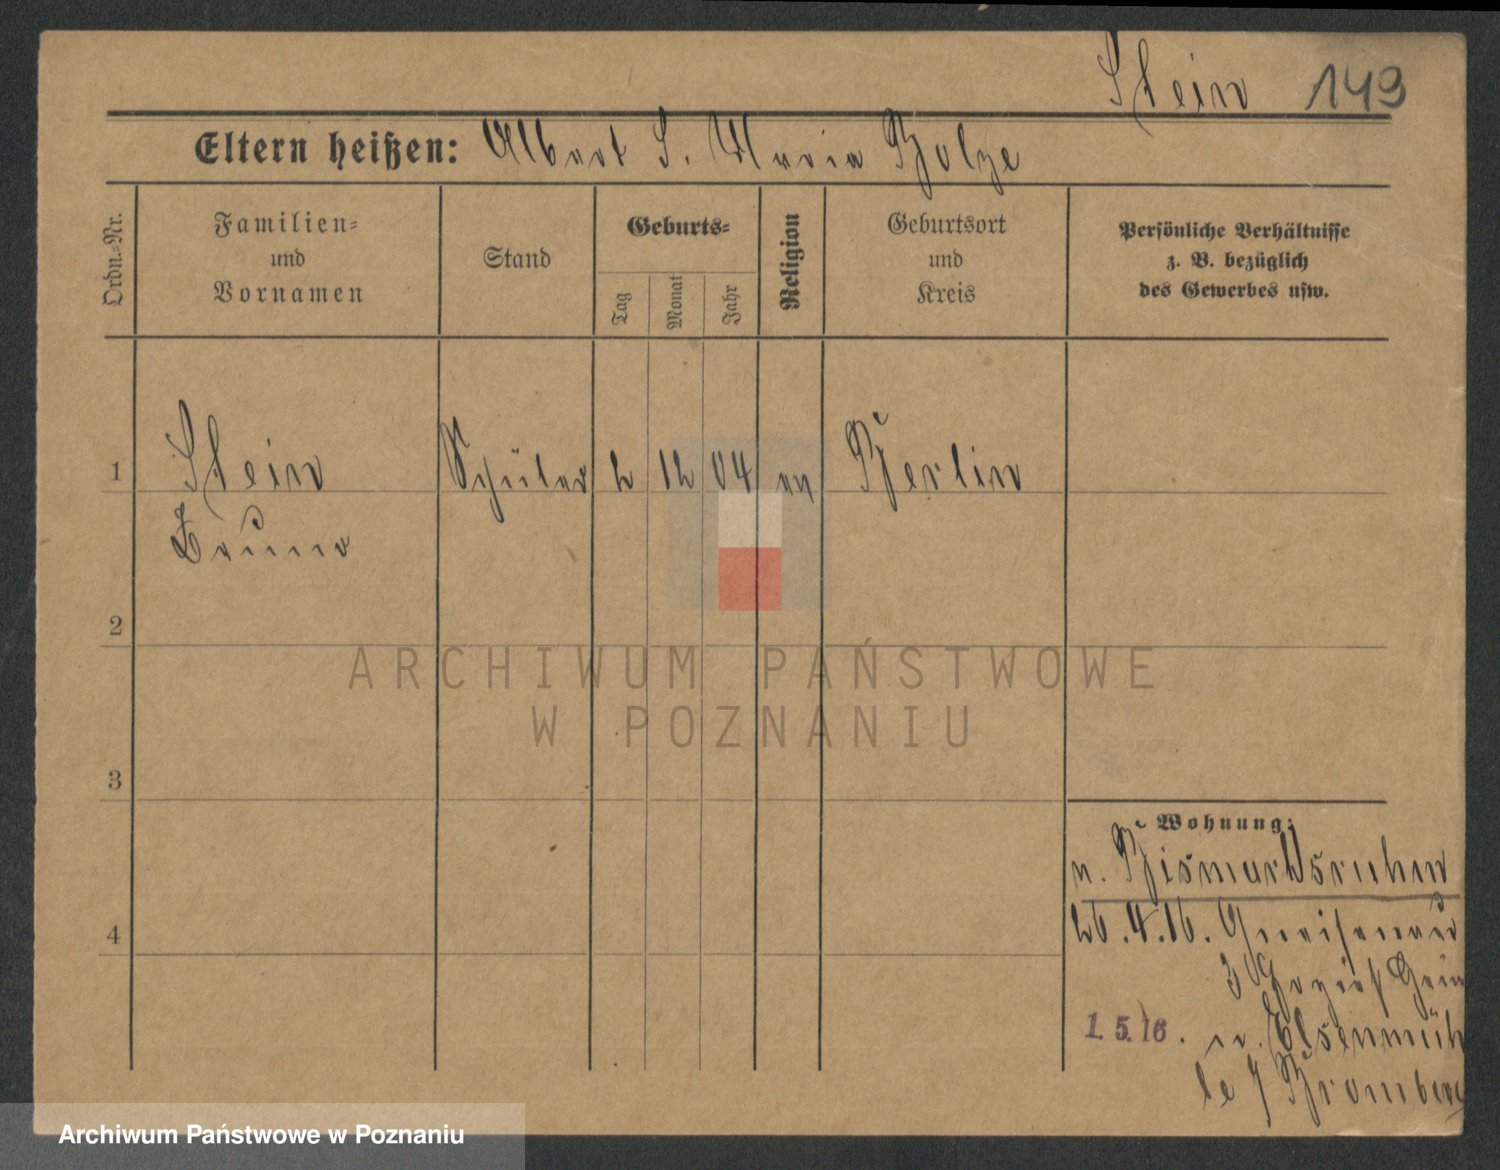 Stein 149
Eltern heißen: Albert S. Maria Bolze
Ordn.-Nr.
Familien-
und
Vornamen
Stand
Geburts-
Tag
Monat
Jahr
Religion
Geburtsort
und
Kreis
Persönliche Verhältnisse
z. B. bezüglich
des Gewerbes usw.
1 Stein Schüler 2 12 04 ev Berlin
Bruno
2
ARCHIWUM PAŃSTWOWE
W POZNANIU
3
Wohnung:
n. Bismarcksruhm
4 26.4.16. Gneisenau
3
1.5.16. n. Elsenmüh
le / Bromberg
Archiwum Państwowe w Poznaniu